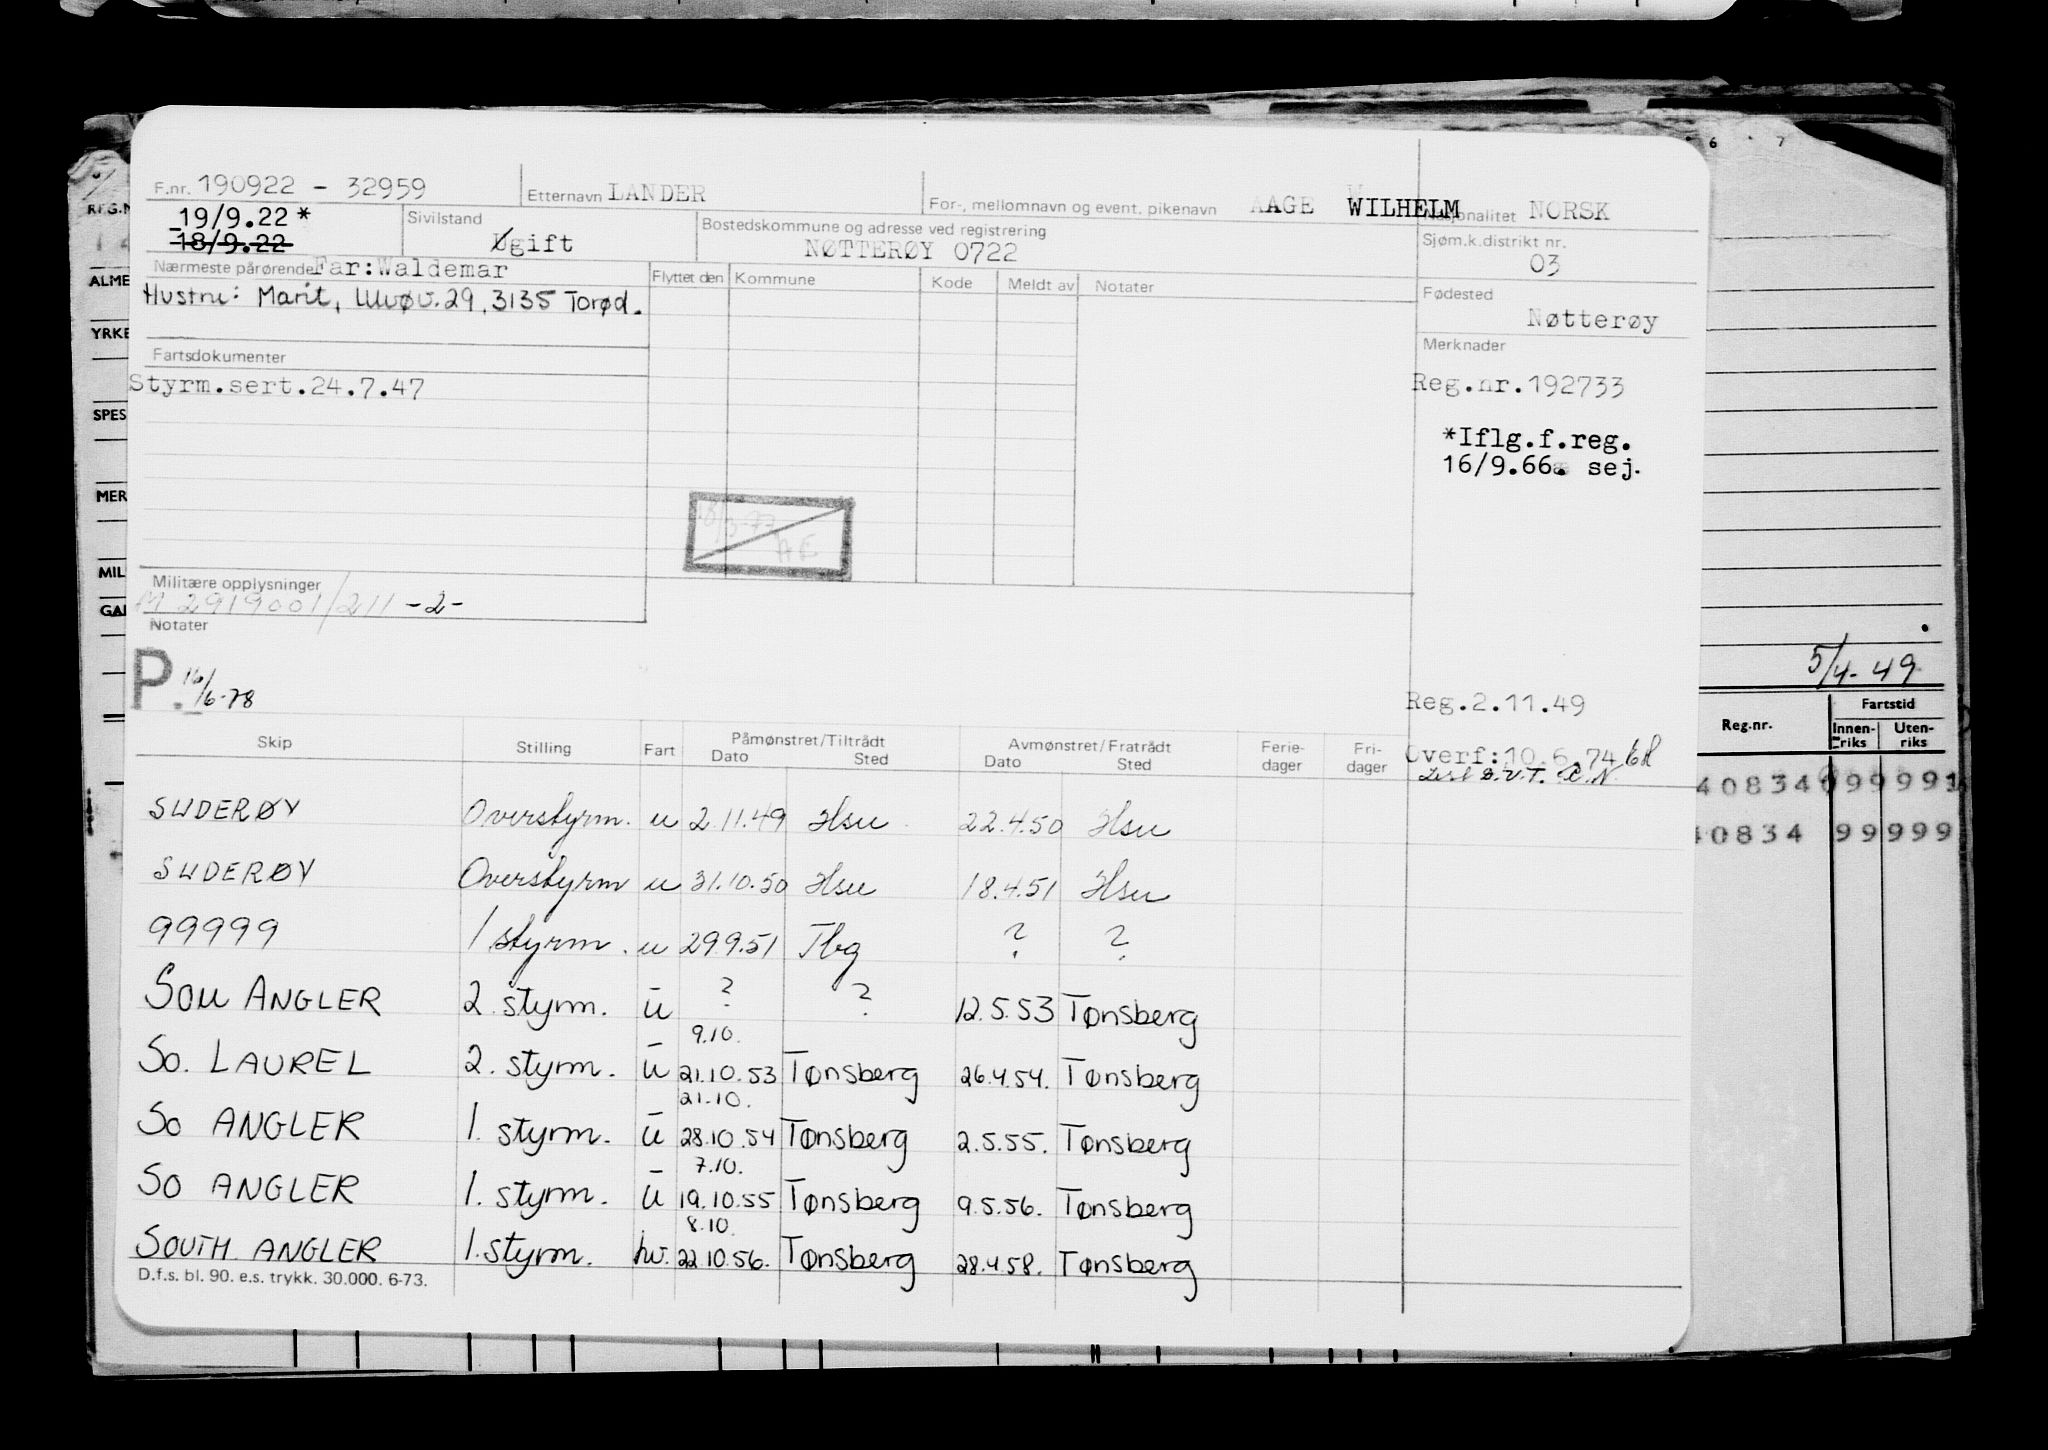 F.nr. 190922 - 32959 Etternavn LANDER For-, mellomnavn og event. pikenavn AAGE WILHELM Nasjonalitet NORSK
19/9.22 *
18/9.22
Sivilstand
Ugift
Bostedskommune og adresse ved registrering
NØTTERØY 0722
Sjøm.k.distrikt nr.
03
Nærmeste pårørende Far:Waldemar
Hustru: Marit, 29, 3135 Torød.
Flyttet den Kommune Kode Meldt av Notater
Fødested
Nøtterøy
Fartsdokumenter
Styrm.sert.24.7.47
Merknader
Reg.nr.192733
*Iflg.f.reg.
16/9.66. sej.
18/3-77
AE
Militære opplysninger
M 2919001/211 -2-
Notater
P. 16/6-78
Reg.2.11.49
Overf:10.6.74
Skip Stilling Fart Påmønstret/Tiltrådt Avmønstret/Fratrådt Ferie- Fri-
Dato Sted Dato Sted dager dager
SUDERØY Overstyrm. u 2.11.49 Hsu 22.4.50 Hsu
SUDERØY Overstyrm u 31.10.50 Hsu 18.4.51 Hsu
99999 1 styrm. u 29.9.51 Tbg ? ?
SOU ANGLER 2. styrm. u ? ? 12.5.53 Tønsberg
9.10.
SO. LAUREL 2. styrm. u 21.10.53 Tønsberg 26.4.54. Tønsberg
21.10.
SO ANGLER 1. styrm. u 28.10.54 Tønsberg 2.5.55. Tønsberg
7.10.
SO ANGLER 1. styrm. u 19.10.55 Tønsberg 9.5.56. Tønsberg
8.10.
SOUTH ANGLER 1. styrm. hv. 22.10.56. Tønsberg 28.4.58. Tønsberg
D.f.s. bl. 90. e.s. trykk. 30.000. 6-73.
6 7
REG.N
ALME
YRKE
SPES
MER
MIL
GA
5/4-49
Reg.nr. Fartstid
Innen-riks Uten-riks
40834 099991
40834 99999